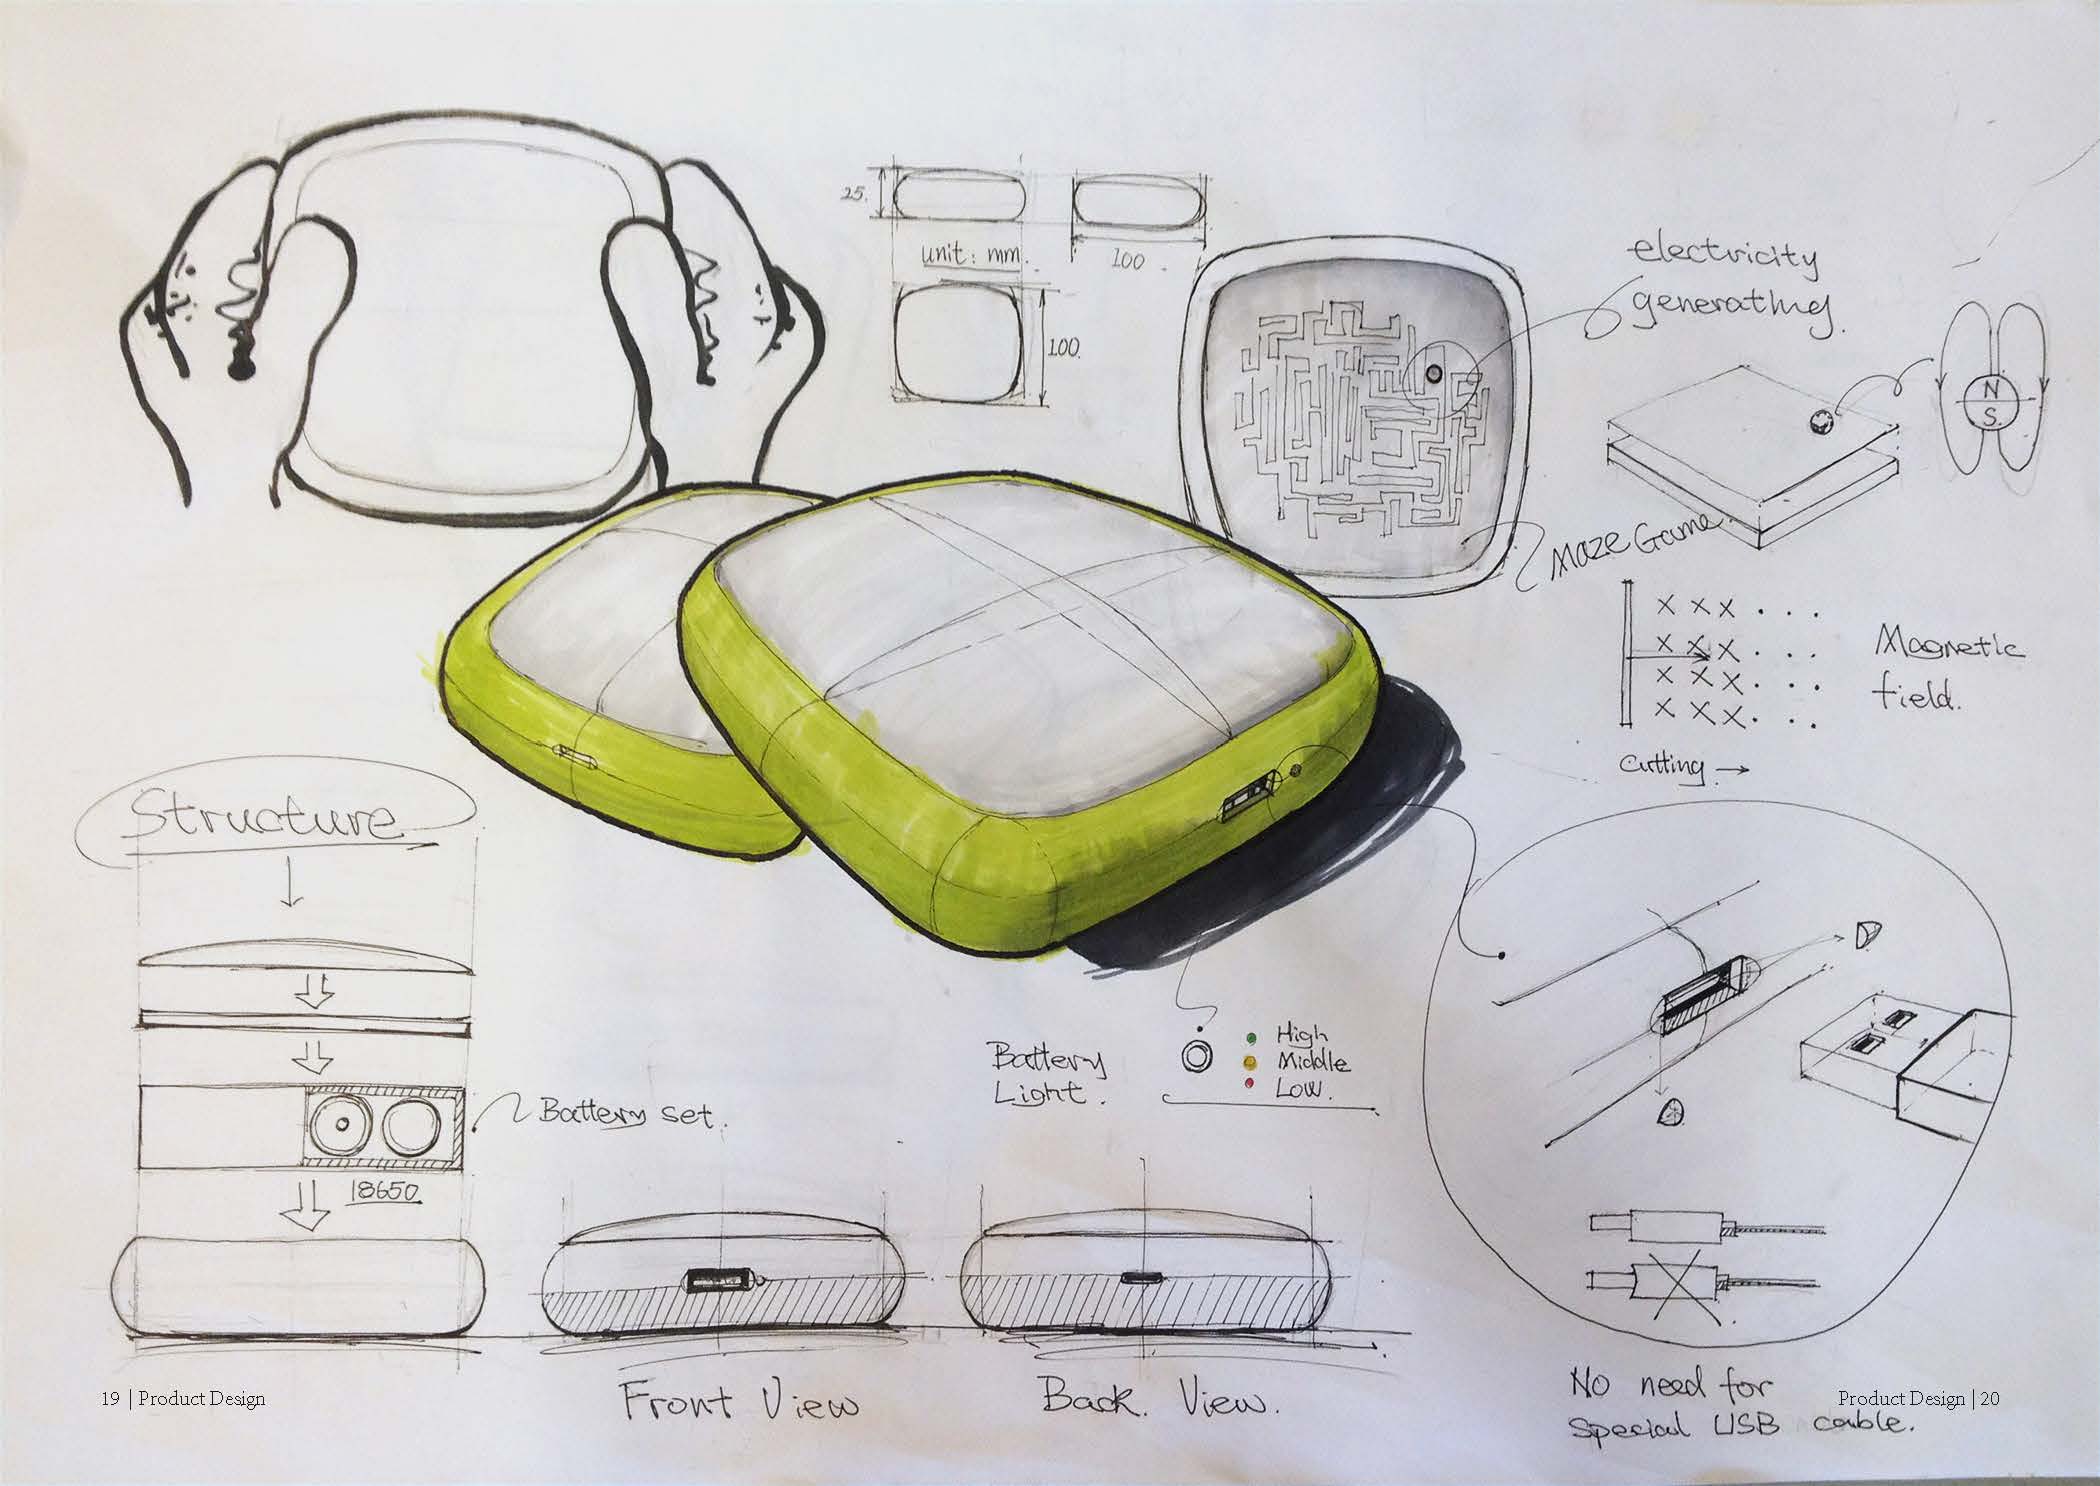 25.
unit: mm.
100.
100.
electricity
generating.
N
S.
Maze Game.
Magnetic
field.
Cutting →
Structure
Battery set.
18650
Battery
Light.
High
Middle
Low.
Front View
Back. View.
No need for
special USB cable.
19 | Product Design
Product Design | 20